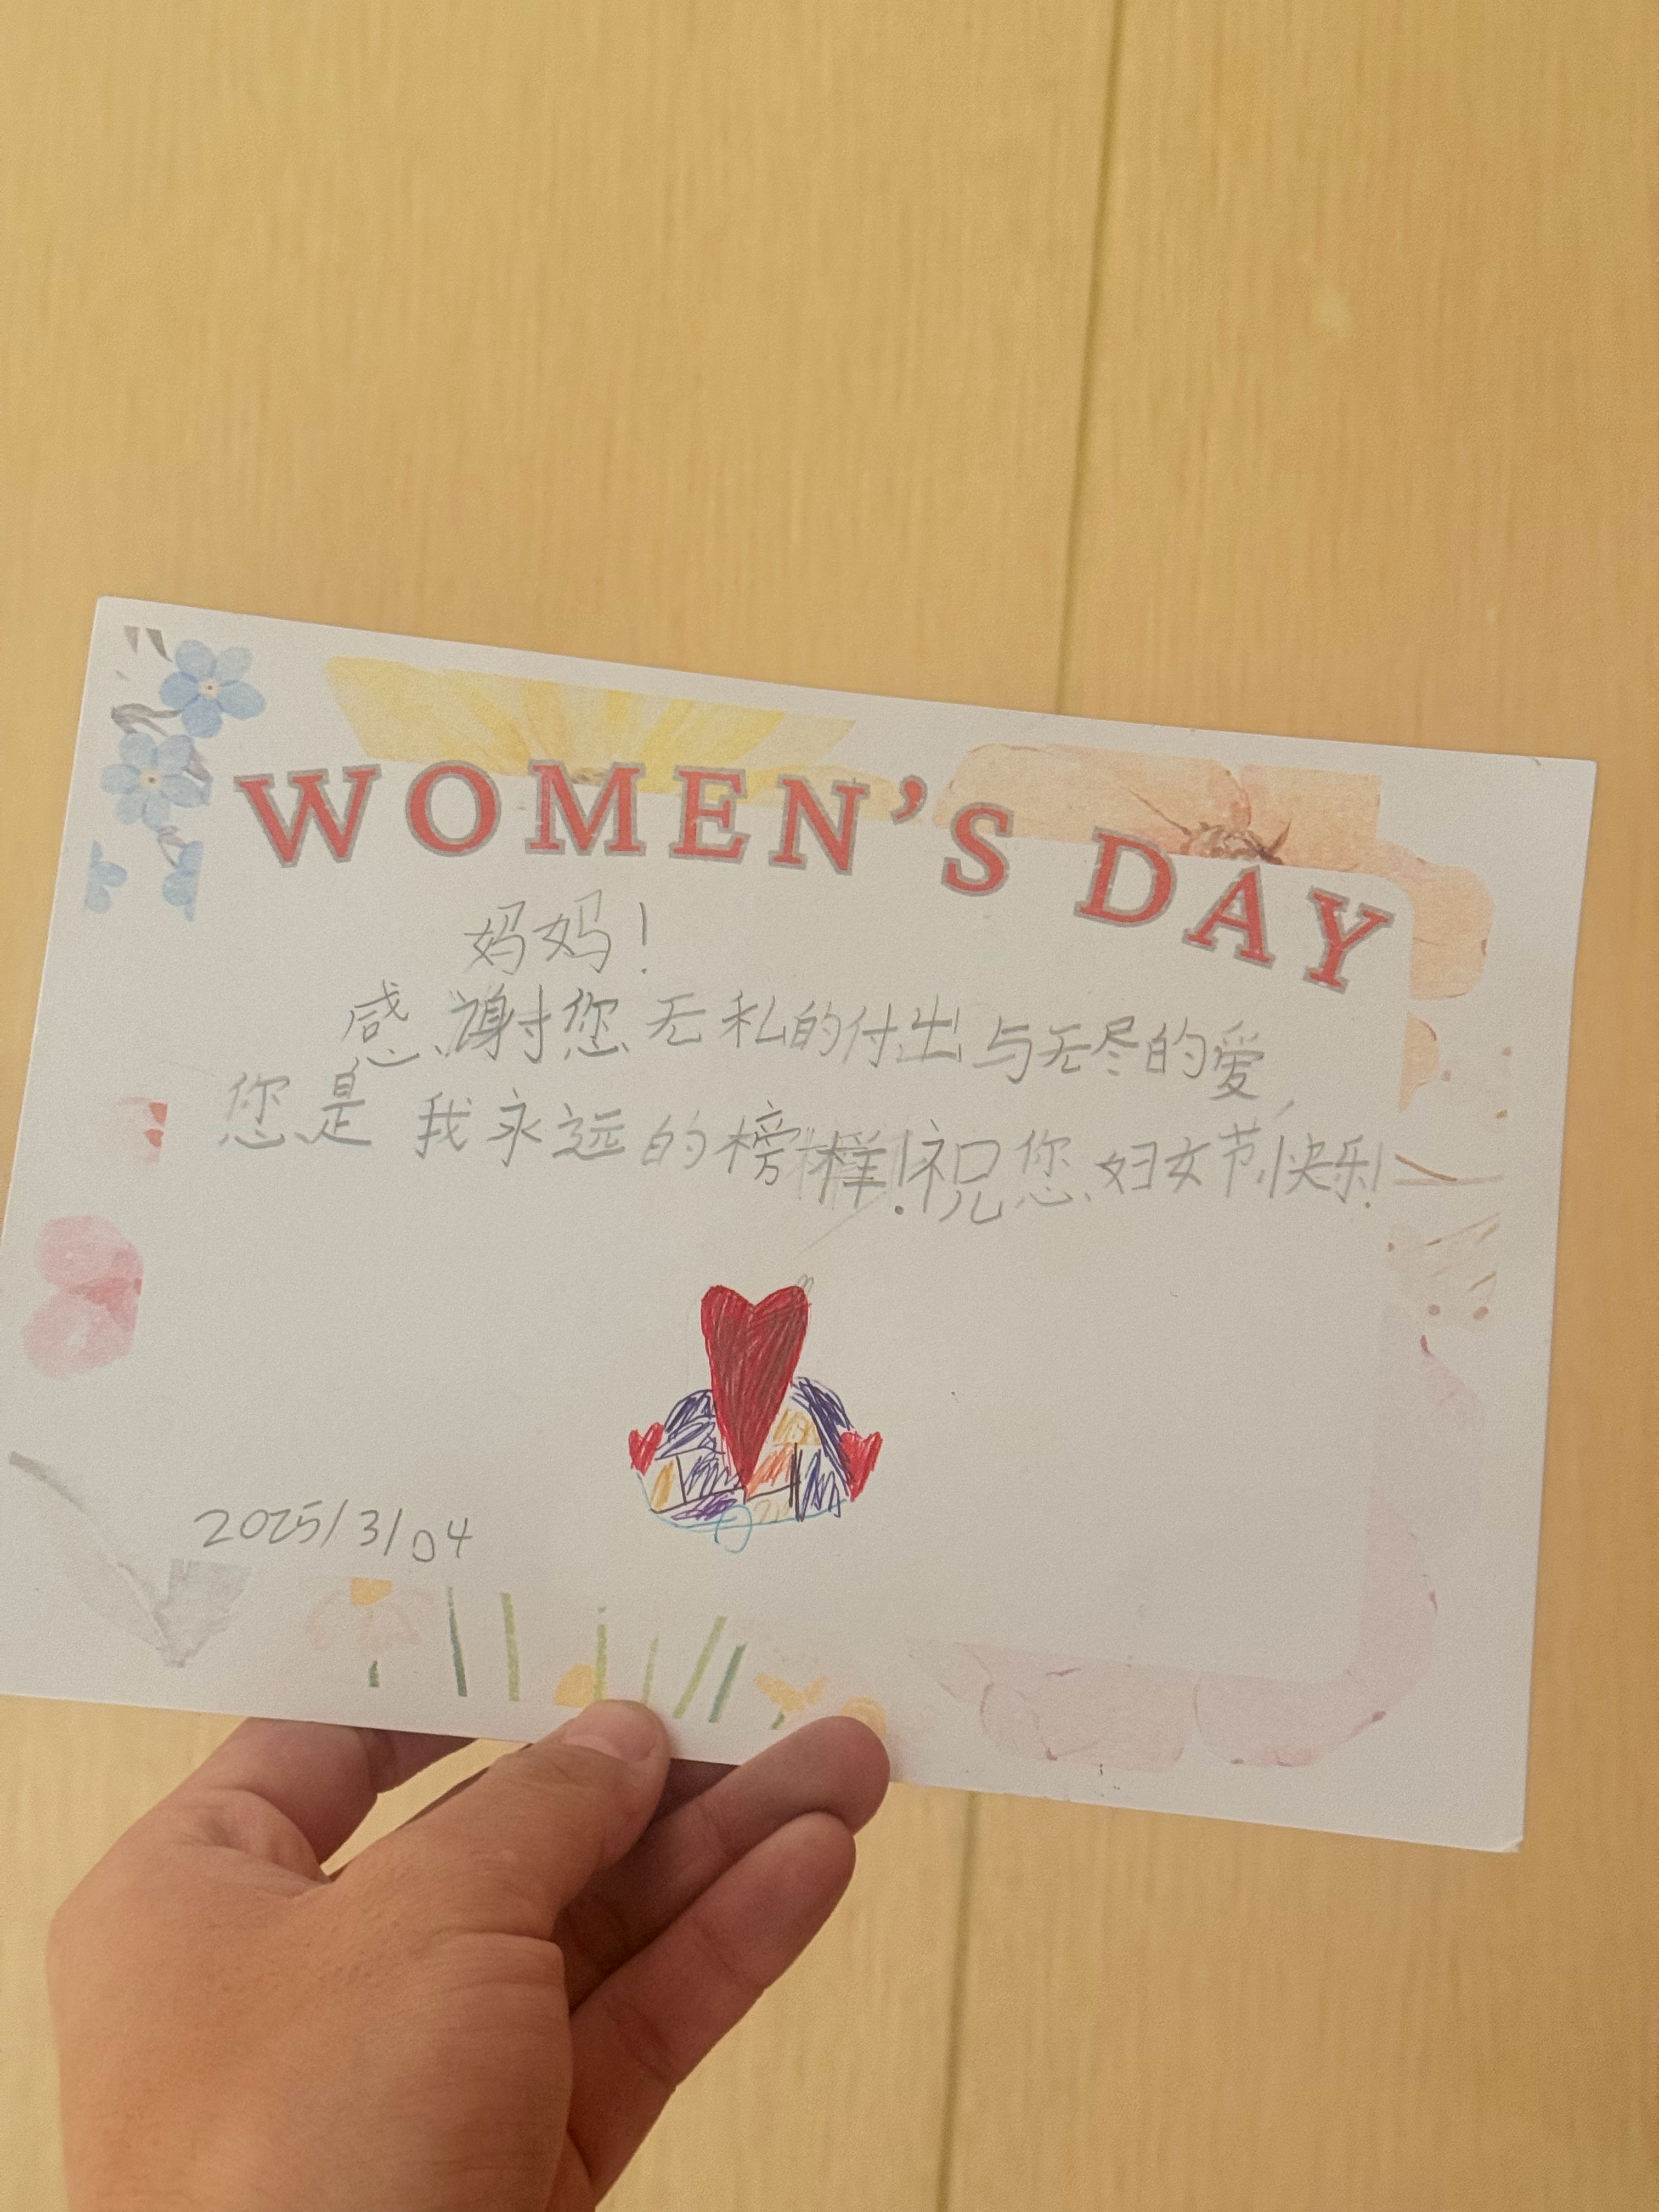 WOMEN'S DAY
妈妈！
感谢您无私的付出与无尽的爱，
您是我永远的榜样！祝您妇女节快乐！
2025/3/04